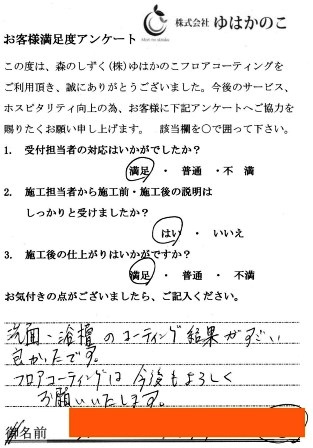 株式会社 ゆはかのこ
お客様満足度アンケート
この度は、森のしずく(株)ゆはかのこフロアコーティングを
ご利用頂き、誠にありがとうございました。今後のサービス、
ホスピタリティ向上の為、お客様に下記アンケートへご協力を
賜りたくお願い申し上げます。 該当欄を○で囲って下さい。
1. 受付担当者の対応はいかがでしたか?
満足 ・ 普通 ・不 満
2. 施工担当者から施工前・施工後の説明は
しっかりと受けましたか?
はい ・ いいえ
3. 施工後の仕上がりはいかがですか?
満足 ・ 普通 ・ 不満
お気付きの点がございましたら、ご記入ください。
洗面・浴槽のコーティング結果がすごい
良かったです。
フロアコーティングは今後もよろしく
お願いいたします。
御名前